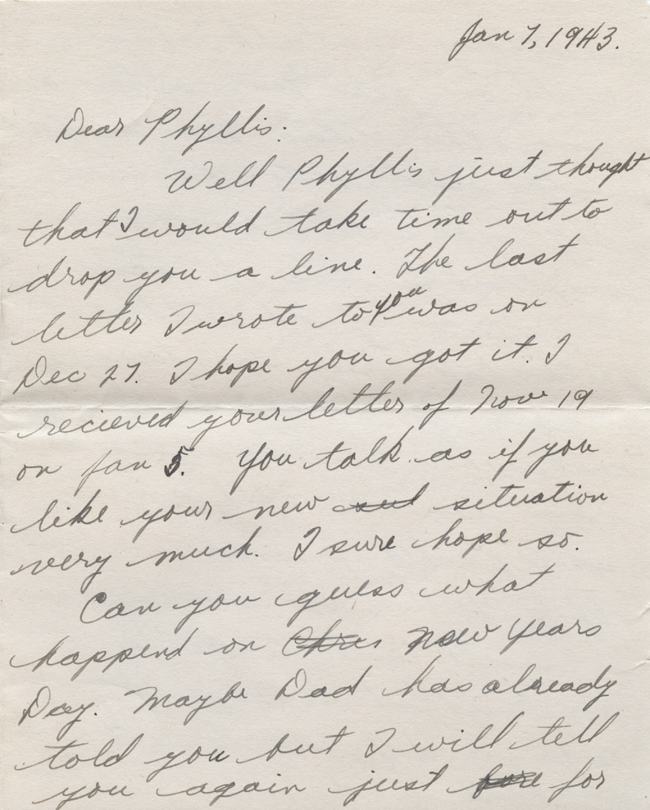 Jan 7, 1943.
Dear Phyllis:
Well Phyllis just thought
that I would take time out to
drop you a line. The last
letter I wrote to you was on
Dec 27. I hope you got it. I
recieved your letter of Nov 19
on Jan 5. You talk as if you
like your new situation
very much. I sure hope so.
Can you guess what
happend on Chris New Years
Day. Maybe Dad has already
told you but I will tell
you again just for